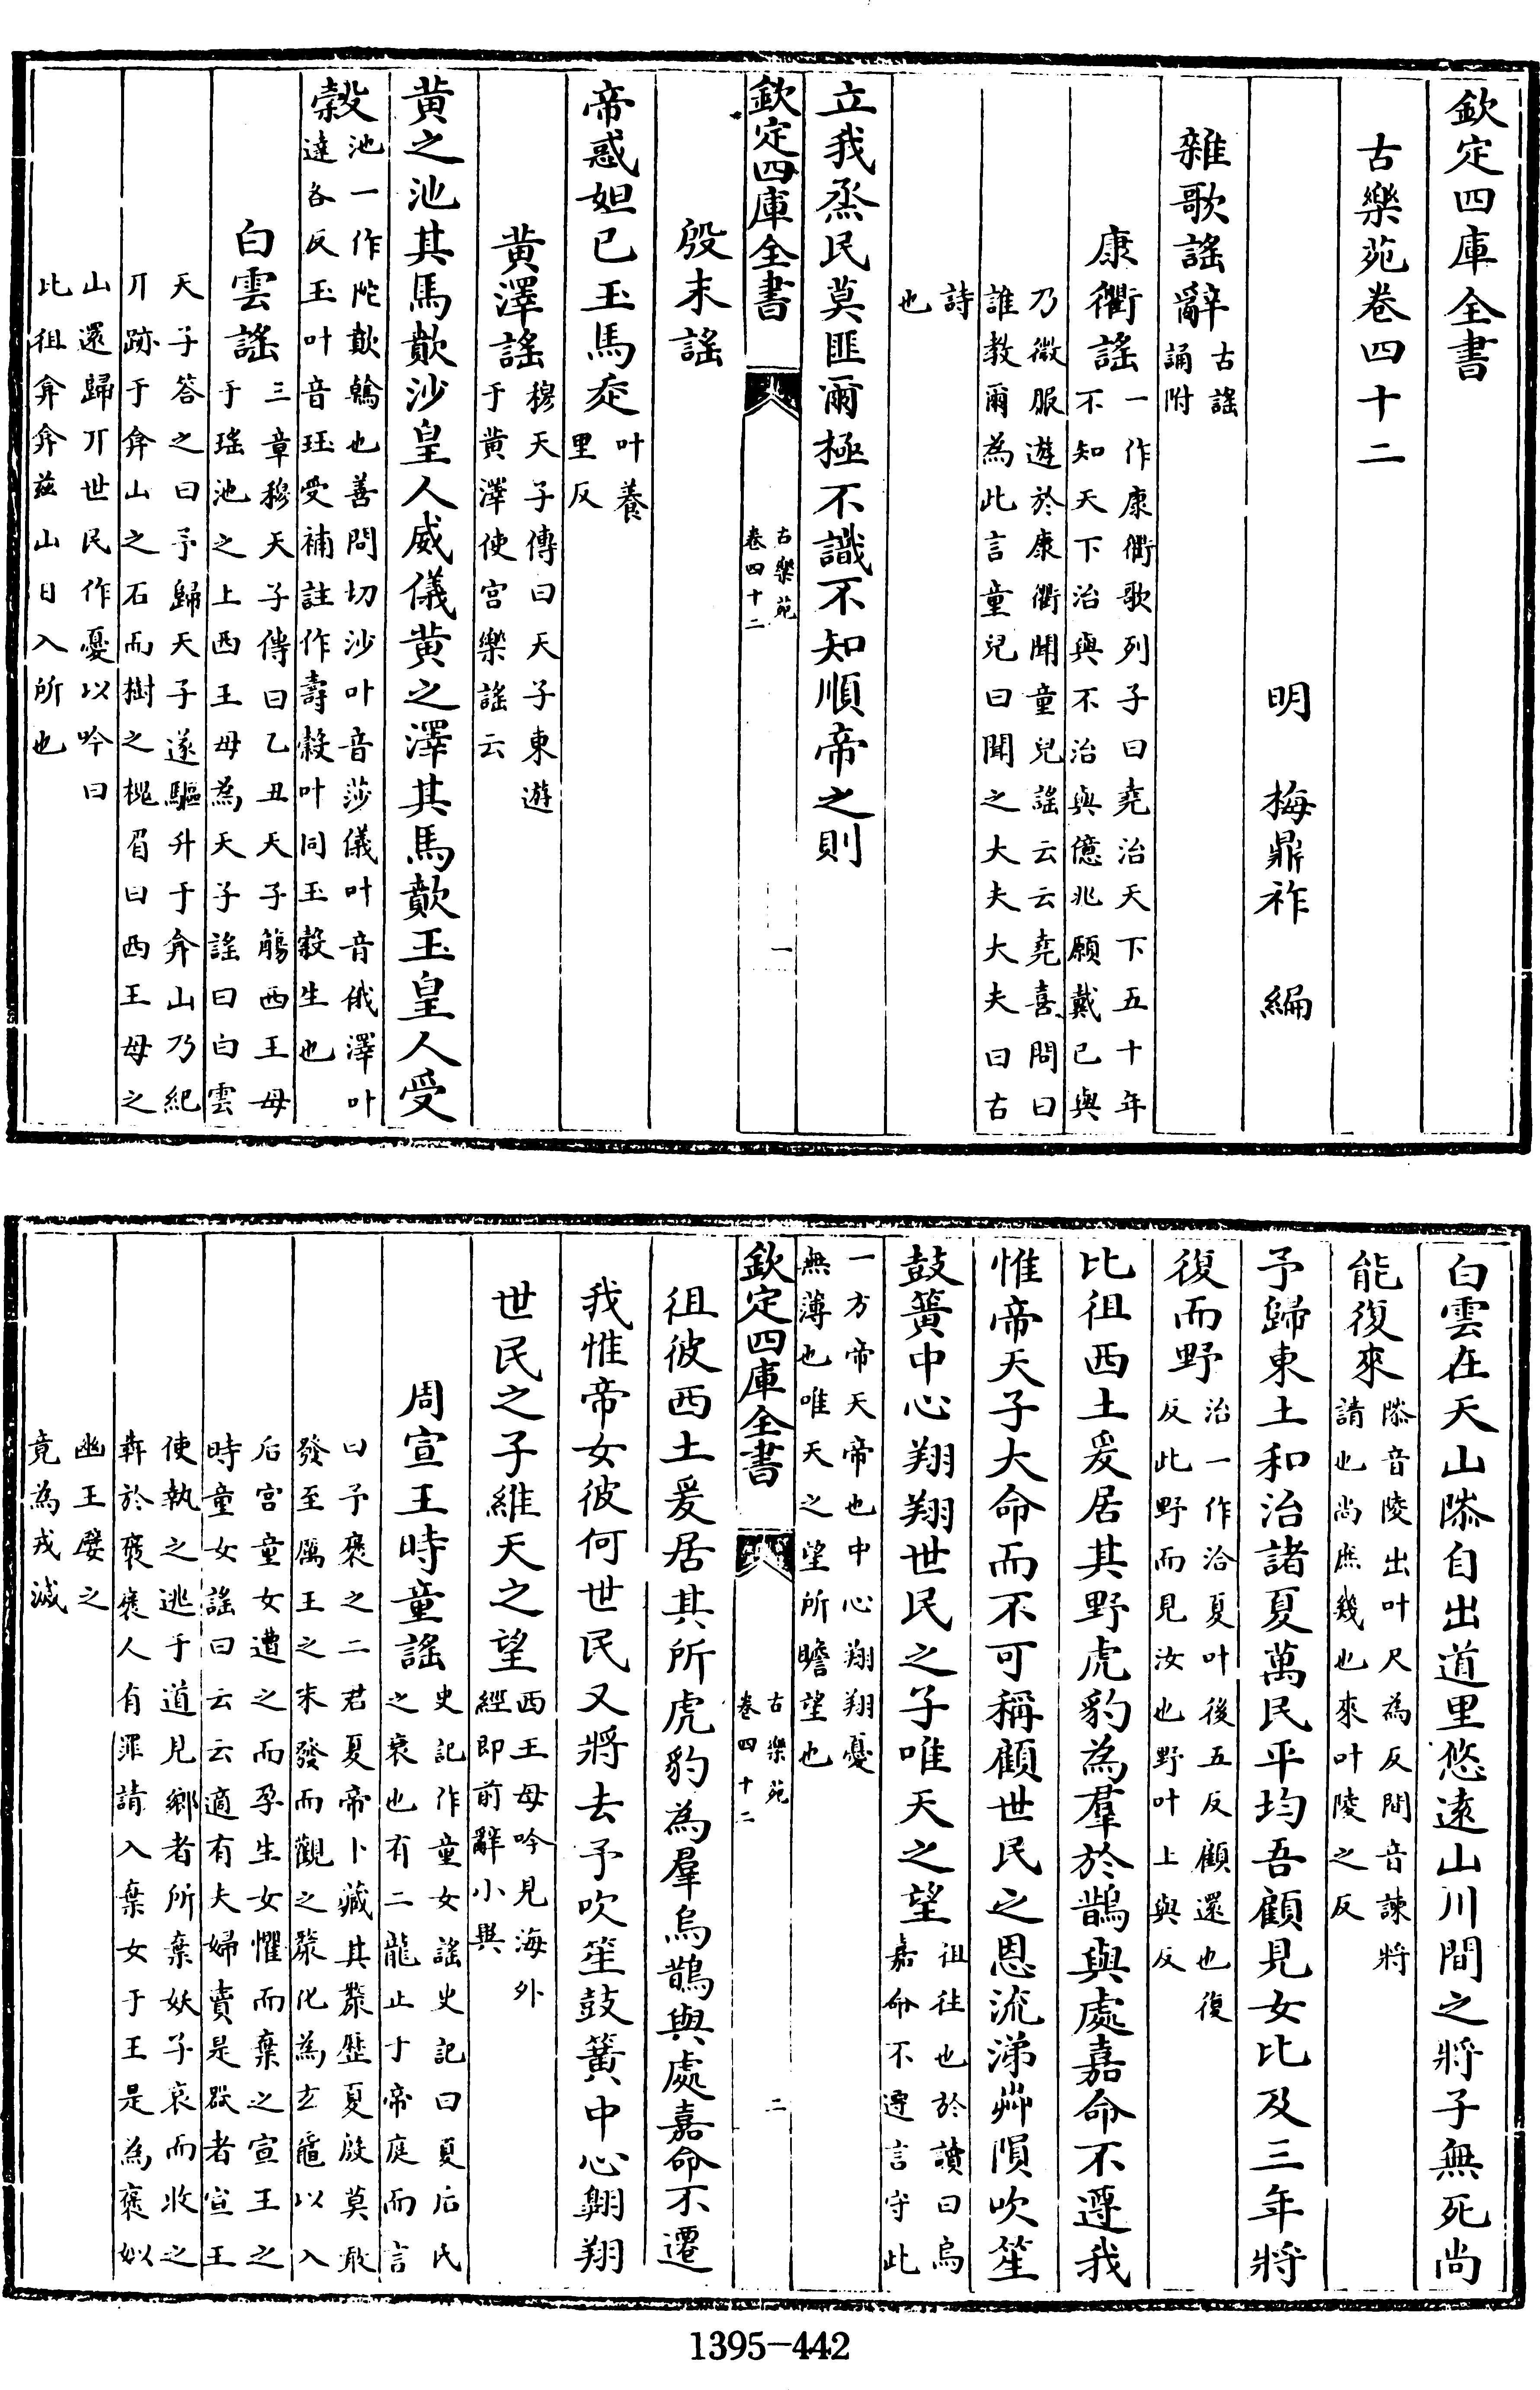 欽定四庫全書
古樂苑卷四十二
明 梅鼎祚 編
雜歌謠辭古謠
誦附
康衢謠一作康衢歌列子曰堯治天下五十年
不知天下治與不治與億兆願戴己與
乃微服遊於康衢聞童兒謠云云堯喜問曰
誰教爾為此言童兒曰聞之大夫大夫曰古
詩
也
立我烝民莫匪爾極不識不知順帝之則
欽定四庫全書
古樂苑
卷四十二
一
殷末謠
帝惑妲已玉馬㞐叶養
里反
黄澤謠穆天子傳曰天子東遊
于黄澤使宫樂謠云
黄之池其馬歕沙皇人威儀黄之澤其馬歕玉皇人受
穀池一作陀歕翰也善問切沙叶音莎儀叶音俄澤叶
達各反玉叶音珏受補註作壽穀叶同玉穀生也
白雲謠三章穆天子傳曰乙丑天子觴西王母
于瑤池之上西王母為天子謠曰白雲
天子答之曰予歸天子遂驅升于弇山乃紀
丌跡于弇山之石而樹之槐眉曰西王母之
山還歸丌世民作憂以吟曰
比徂弇弇兹山日入所也
白雲在天山𨺗自出道里悠遠山川間之將子無死尚
能復來𨺗音陵出叶尺為反間音諫將
請也尚庶幾也來叶陵之反
予歸東土和治諸夏萬民平均吾顧見女比及三年將
復而野治一作洽夏叶後五反顧還也復
反此野而見汝也野叶上與反
比徂西土爰居其野虎豹為羣於鵲與處嘉命不遷我
惟帝天子大命而不可稱顧世民之恩流涕艸隕吹笙
鼓簧中心翔翔世民之子唯天之望徂往也於讀曰烏
嘉命不遷言守此
一方帝天帝也中心翔翔憂
無薄也唯天之望所瞻望也
欽定四庫全書
古樂苑
卷四十二
二
徂彼西土爰居其所虎豹為羣烏鵲與處嘉命不遷
我惟帝女彼何世民又將去予吹笙鼓簧中心翺翔
世民之子維天之望西王母吟見海外
經即前辭小異
周宣王時童謠史記作童女謠史記曰夏后氏
之衰也有二龍止于帝庭而言
曰予褒之二君夏帝卜藏其漦歴夏殷莫敢
發至厲王之末發而觀之漦化為玄黿以入
后宫童女遭之而孕生女懼而棄之宣王之
時童女謠曰云云適有夫婦賣是器者宣王
使執之逃于道見鄉者所棄妖子哀而收之
犇於褒褒人有罪請入棄女于王是為褒姒
幽王嬖之
竟為戎滅
1395-442